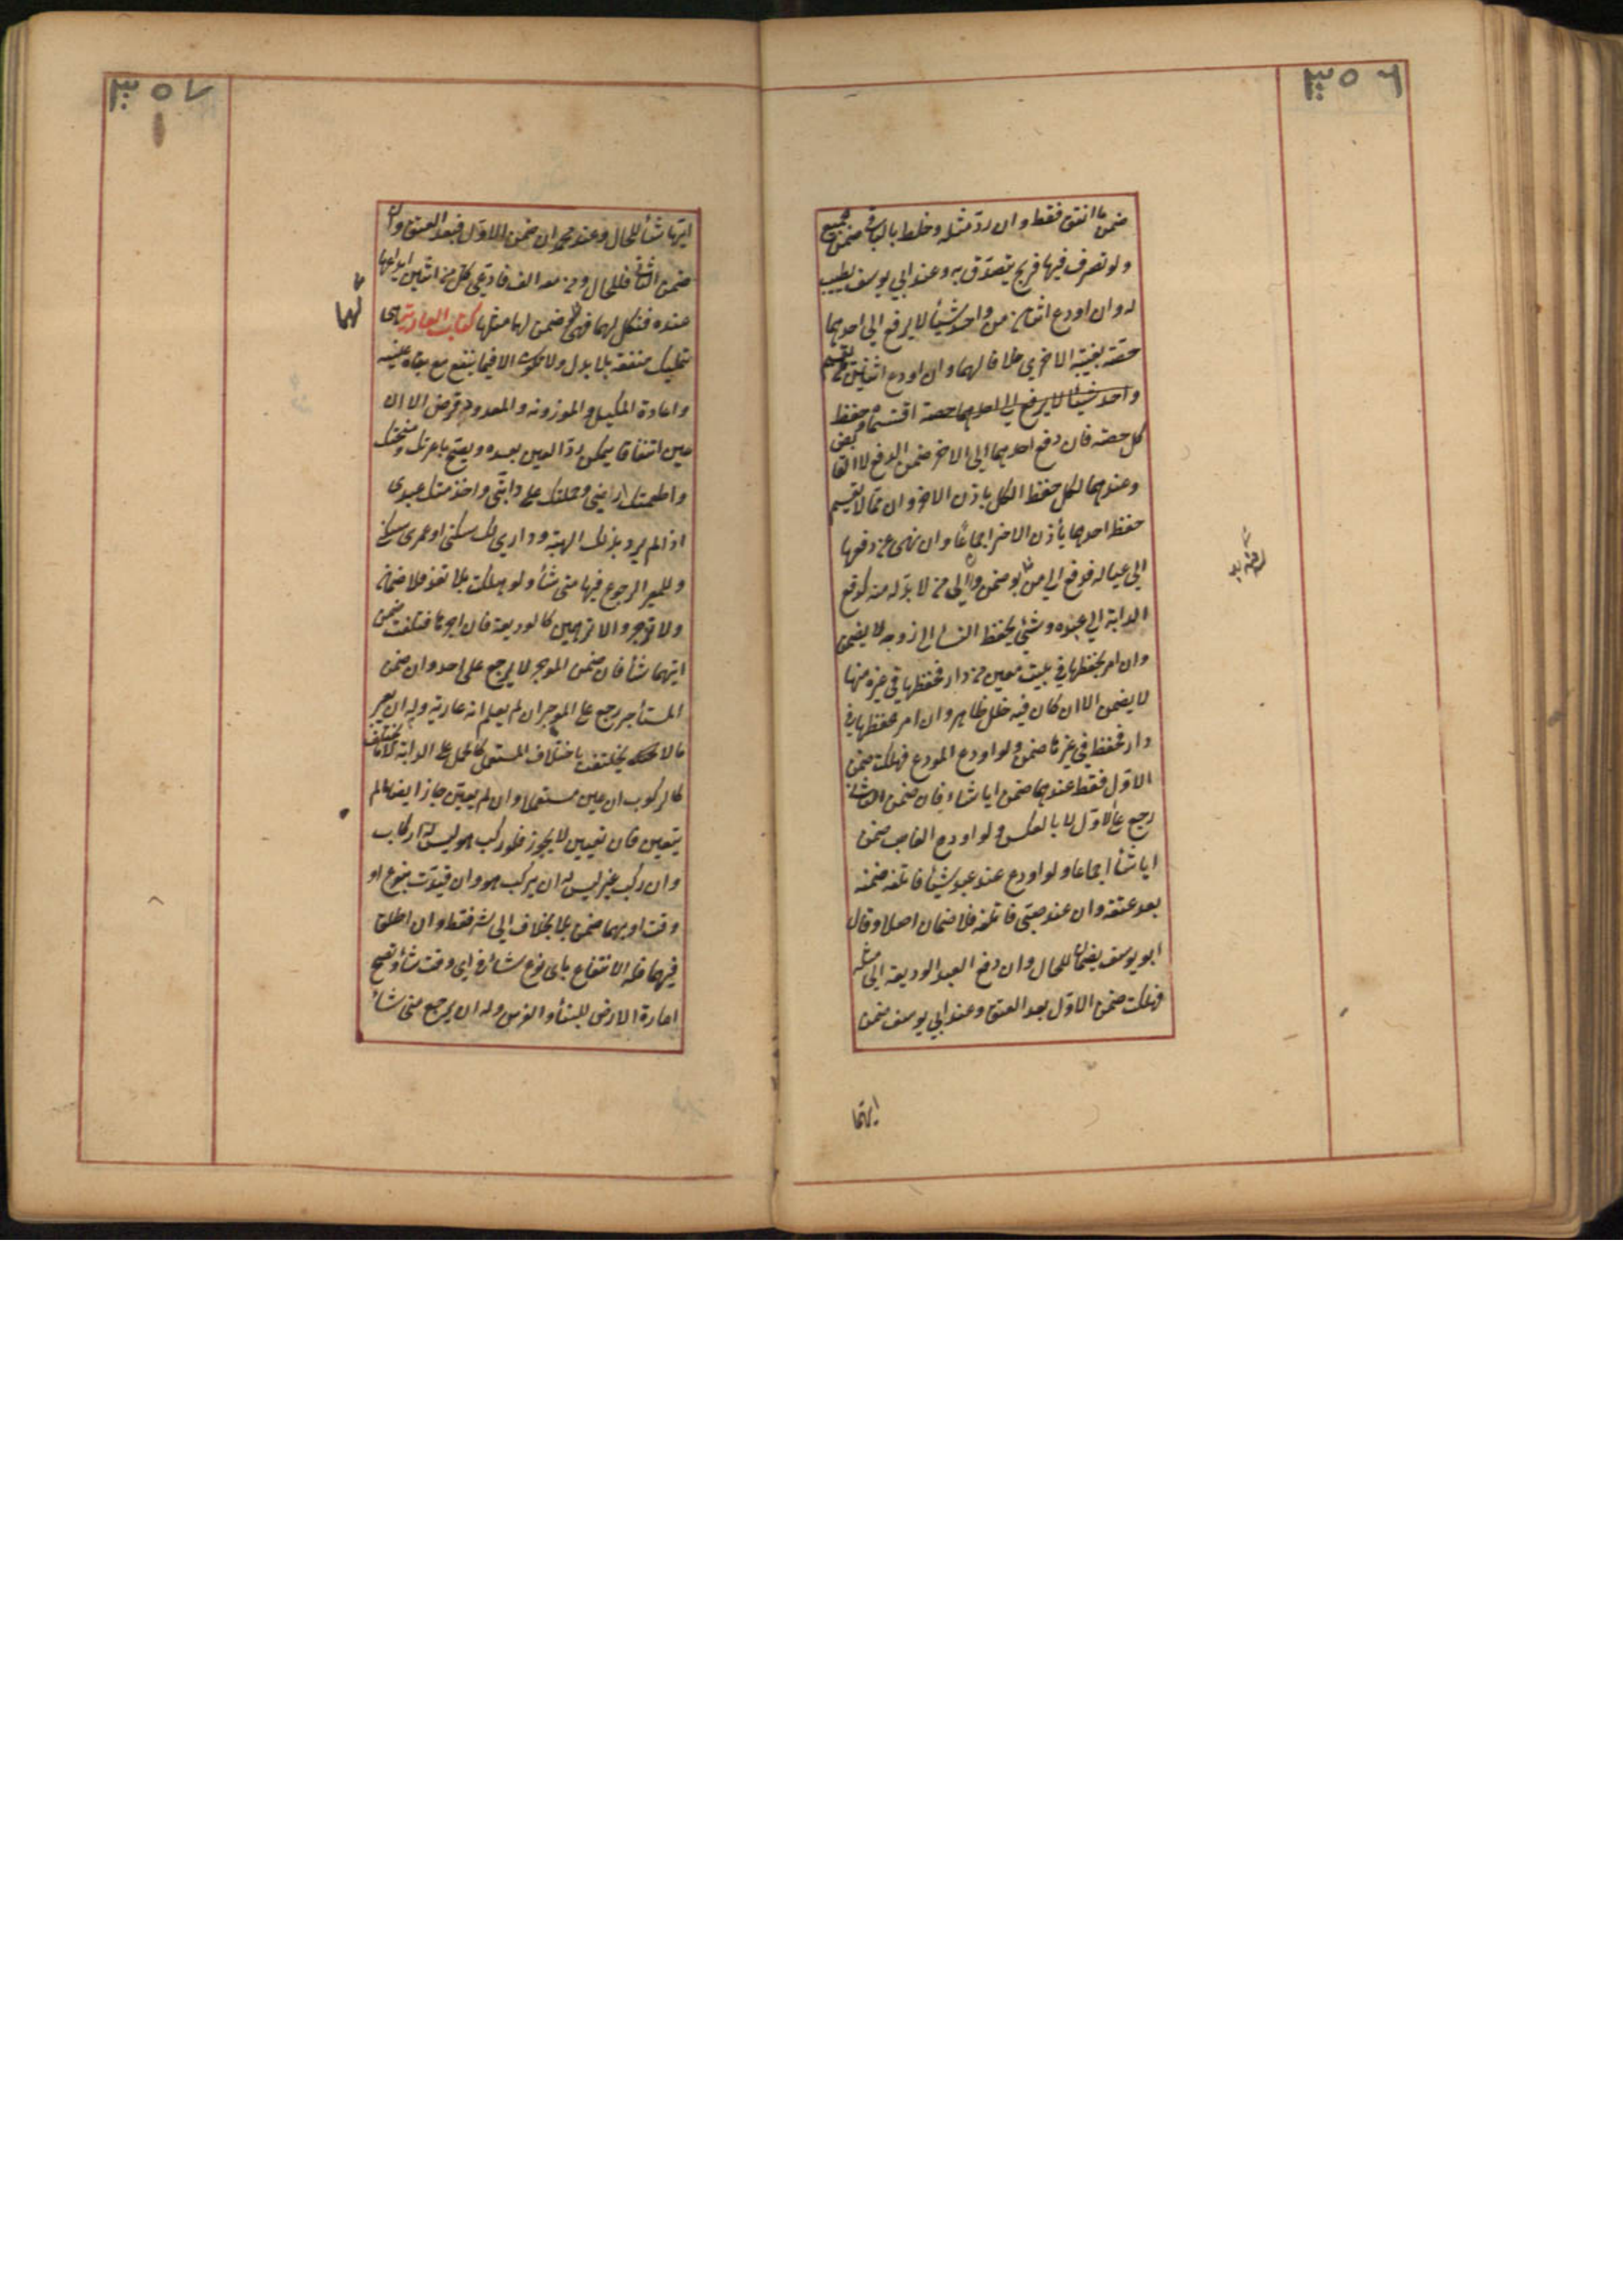 ٣٥٦
ضمن ما انفق فقط وان ردّ مثله وخلط بالباقي ضمن الجميع
ولو تصرف فيها فربح يتصدّق به وعند ابي يوسف يطيب
له وان اودع اثنان من واحد شيأ لا يدفع الى احدهما
حصّته بغيبة الاخرى خلافا لهما وان اودع اثنين ما يقسم
واحد شيأ لا يدفع الى احدهما حصته اقتسماه وحفظ
كل حصته فان دفع احدهما الى الاخر ضمن الدافع لا القابض
وعندهما لكل حفظ الكل باذن الاخر وان مما لا يقسم
حفظ احدهما بأذن الاخر اجماعًا وان نهى عن دفعها
الى عياله فدفع الى من له بد ضمن والى من لا بدّ له منه كدفع
الدابة الى عبده وشئ يحفظ النساء الى زوجه لا يضمن
وان امر بحفظها في بيت معين من دار فحفظها في غيره منها
لا يضمن الا ان كان فيه خلل ظاهر وان امر بحفظها في
دار فحفظ في غيرها ضمن ولو اودع المودع فهلكت ضمن
الاوّل فقط عندهما ضمن ايا شاء فان ضمن الثاني
رجع على الاوّل لا بالعكس ولو اودع الغاصب ضمن
ايا شأ اجماعا ولو اودع عند عبد شيأ فاتلفه ضمنه
بعد عتقه وان عند صبّى فاتلفه فلا ضمان اصلا وقال
ابو يوسف يضمنان للحال وان دفع العبد الوديعة الى مثله
فهلكت ضمن الاوّل بعد العتق وعند ابي يوسف ضمن
ايهما
٣٥٧
ايهما شأ للحال وعند محمد ان ضمن الاوّل فبعد العتق وان
ضمن الثاني فللحال ومن معه الف فادّعى كل من اثنين ايداعها
عنده فنكل لهما فهى لهما وضمن لهما مثلها كتاب العارية هى
لهما
تمليك منفعة بلا بدل ولا تكون الا فيما ينتفع مع بقاء عينه
واعارة المكيل والموزون والمعدود قرض الا ان
عين انتفاعا يمكن ردّ العين بعده ويصح باعرتك ومنحتك
واطعمتك ارضي وحملتك على دابتى واخدمتك عبدى
اذا لم يرد بذلك الهبة ودارى لك سكنى او عمرى سكنى
وللمعير الرجوع فيها متى شأ ولو هلكت بلا تعدّ فلا ضمان
ولا تؤجر ولا ترهن كالوديعة فان اجرها فتلفت ضمن
ايهما شأ فان ضمن الموجر لا يرجع على احد وان ضمن
المستأجر رجع على الموجر ان لم يعلم انه عارية وله ان يعير
ما لا يختلف باختلاف المستعمل كالحمل على الدابة لا ما يختلف
كالركوب ان عين مستعملا وان لم يعين جاز ايضا ما لم
يتعين فان تعيين لا يجوز فلو ركب هو ليس له اركاب
وان اركب غير ليس له ان يركب هو وان قيدت بنوع او
وقت او بهما ضمن بالخلاف الى شر فقط وان اطلق
فيهما فله الانتفاع باى نوع شأ في اى وقت شأ وتصح
اعارة الارض للبنأ والغرس وله ان يرجع متى شأ